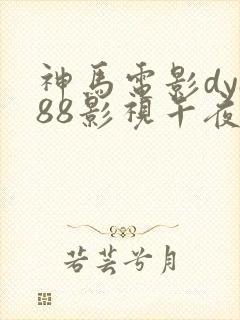 神馬電影dy
88影視午夜
若芸兮月